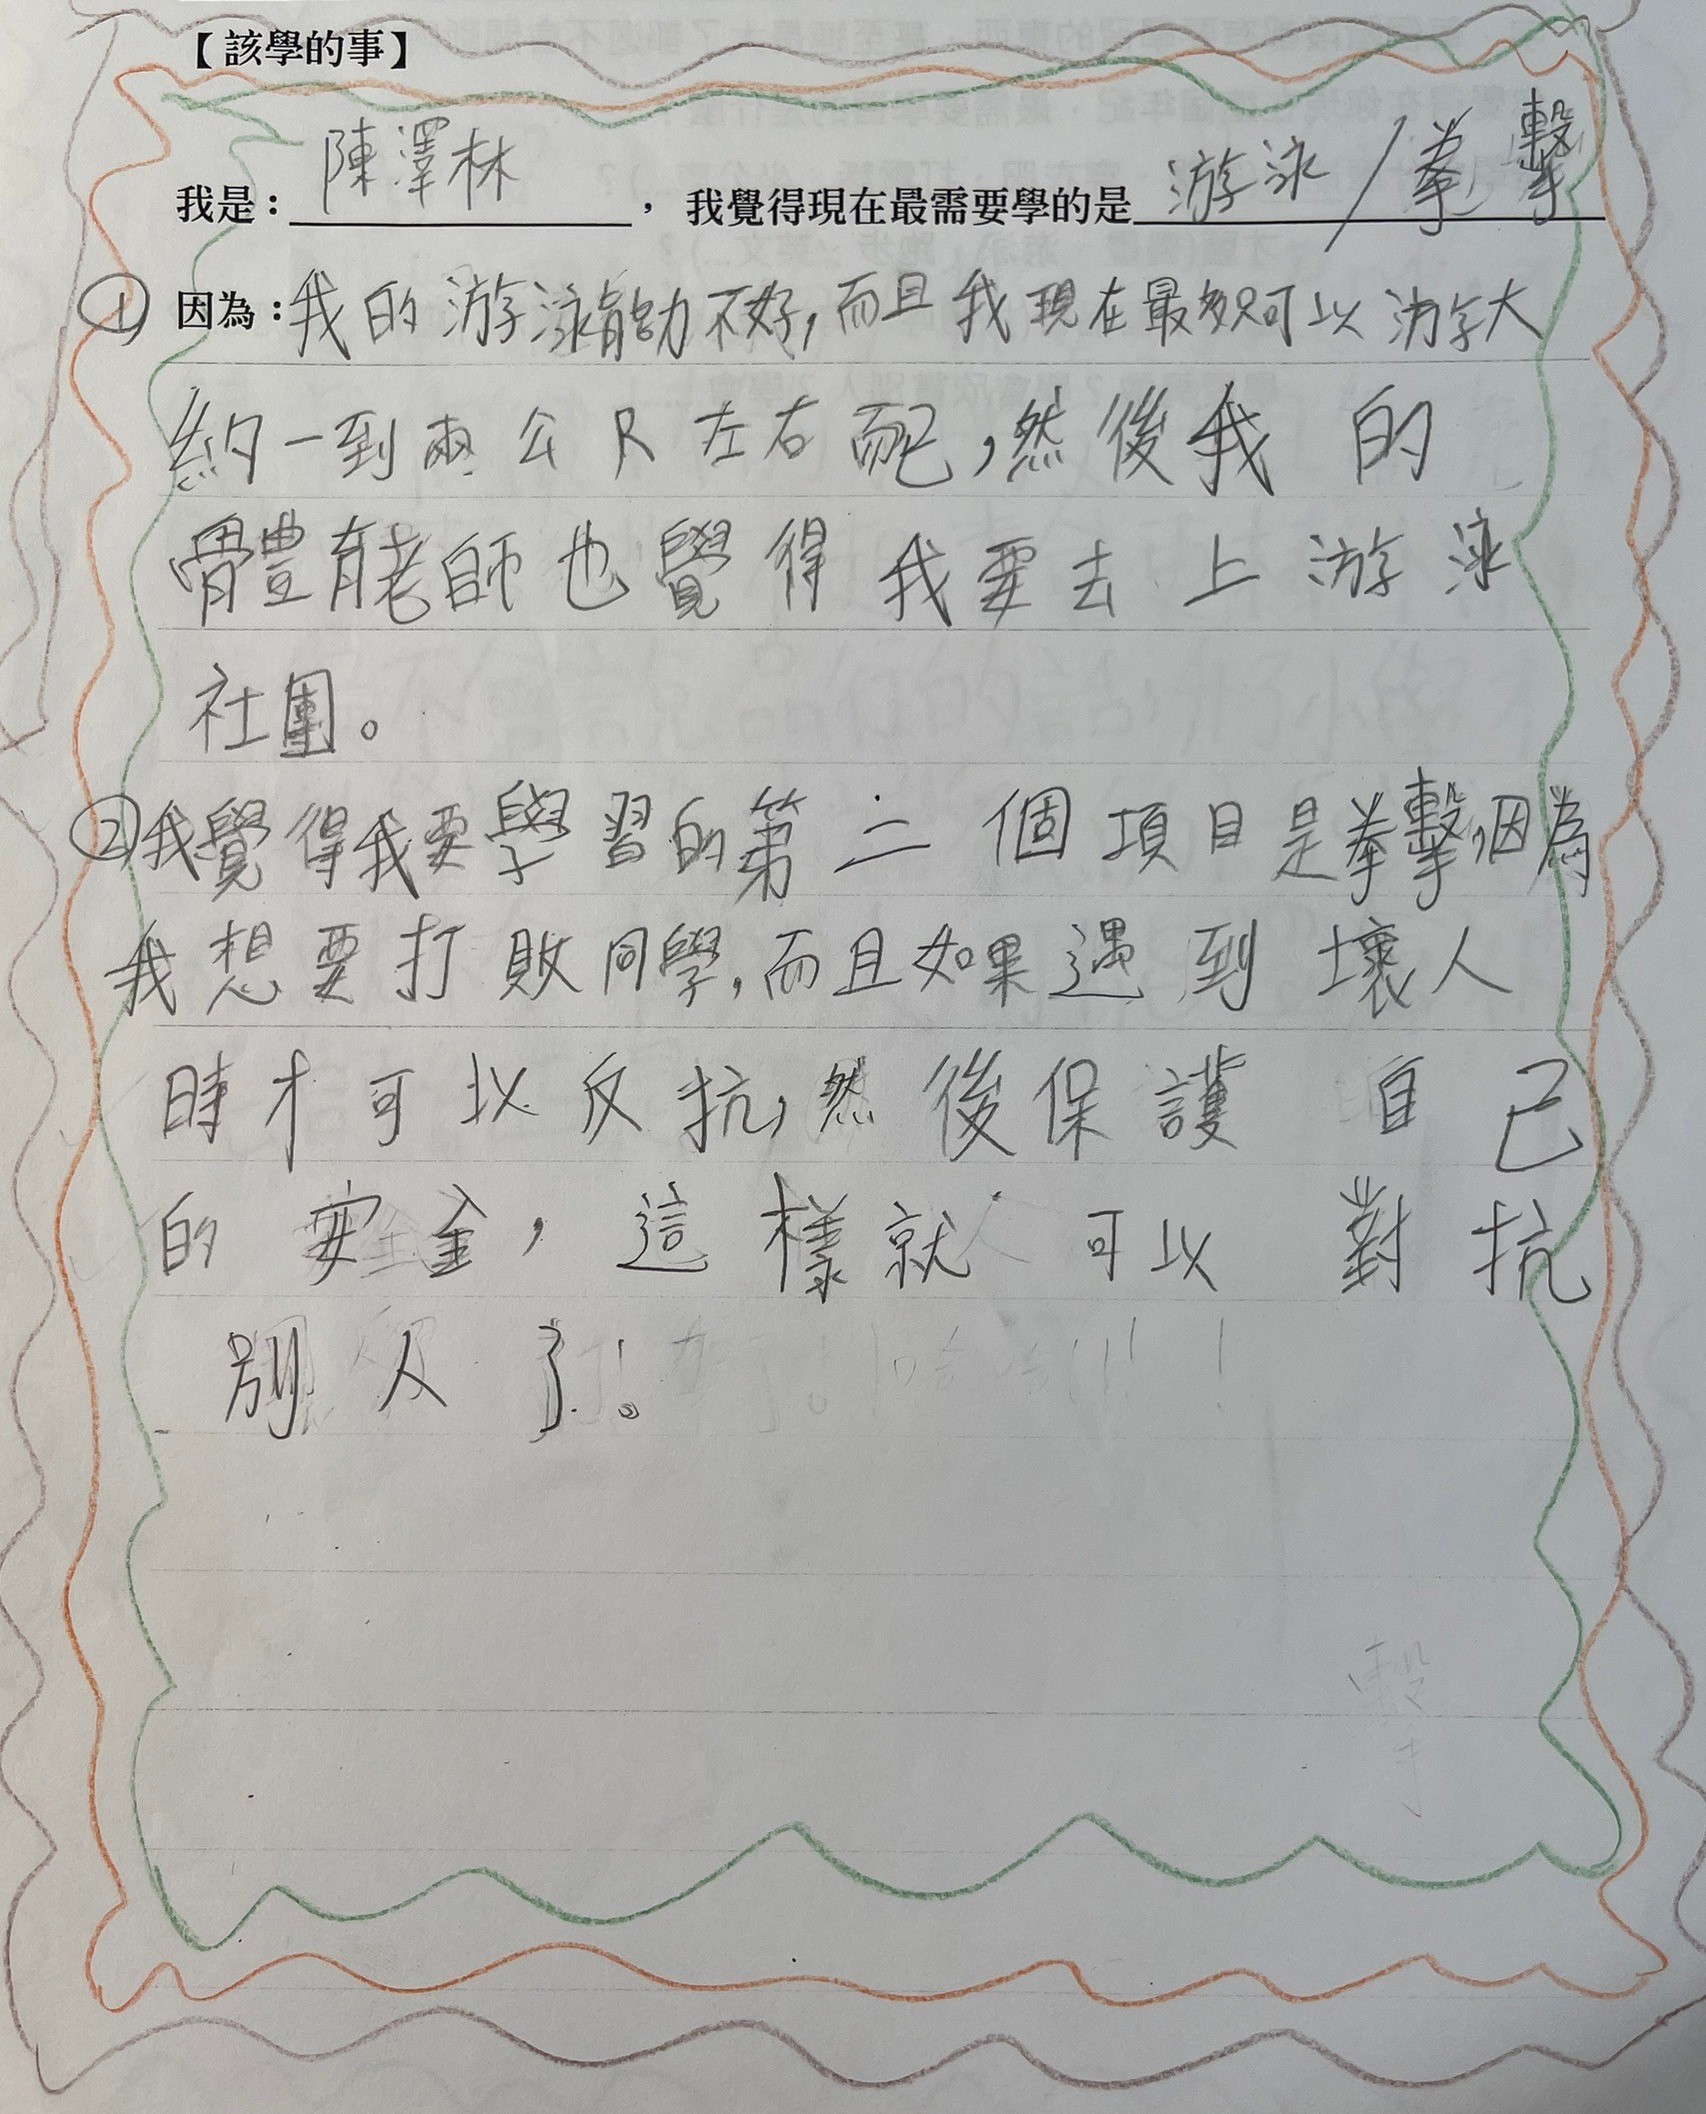 【該學的事】
我是：陳澤林，我覺得現在最需要學的是游泳/拳擊
① 因為：我的游泳能力不好，而且我現在最多只可以游大
約一到兩公尺左右而已，然後我的
體育老師也覺得我要去上游泳
社團。
②我覺得我要學習的第二個項目是拳擊，因為
我想要打敗同學，而且如果遇到壞人
時才可以反抗，然後保護自己
的安全，這樣就可以對抗
別人了！。